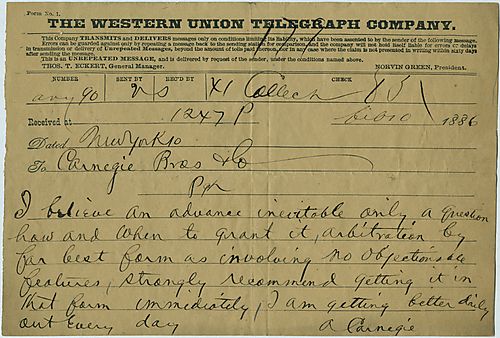 Form No. 1.
THE WESTERN UNION TELEGRAPH COMPANY.
This Company TRANSMITS and DELIVERS messages only on conditions limiting its liability, which have been assented to by the sender of the following message.
Errors can be guarded against only by repeating a message back to the sending station for comparison, and the company will not hold itself liable for errors or delays
in transmission or delivery of Unrepeated Messages, beyond the amount of tolls paid thereon, nor in any case where the claim is not presented in writing within sixty days
after sending the message.
This is an UNREPEATED MESSAGE, and is delivered by request of the sender, under the conditions named above.
THOS. T. ECKERT, General Manager. NORVIN GREEN, President.
NUMBER SENT BY REC'D BY CHECK
90 41 Collect
Received at 1247 P 1886
Dated New York 10
To Carnegie Bros & Co
I believe an advance inevitable only a question
how and when to grant it, arbitration by
far best form as involving no objectionable
features, strongly recommend getting it in
that form immediately, I am getting better daily
out every day A Carnegie